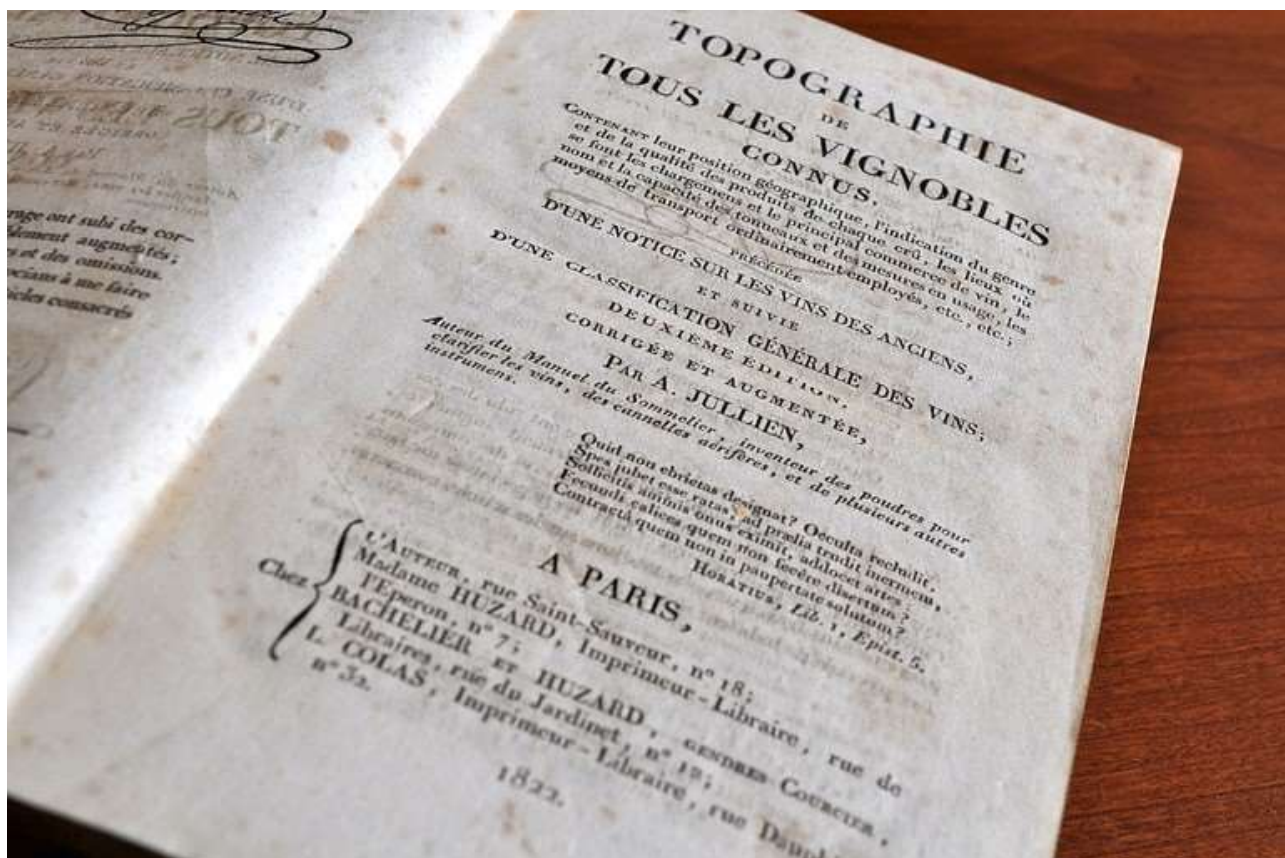 rage ont subi des cor-
lement augmentés;
s et des omissions.
ocians à me faire
ticles consacrés
TOPOGRAPHIE
DE
TOUS LES VIGNOBLES
CONNUS,
CONTENANT leur position géographique, l'indication du genre
et de la qualité des produits de chaque crû, les lieux où
se font les chargemens et le principal commerce de vin, le
nom et la capacité des tonneaux et des mesures en usage, les
moyens de transport ordinairement employés, etc., etc.;
PRÉCÉDÉE
D'UNE NOTICE SUR LES VINS DES ANCIENS,
ET SUIVIE
D'UNE CLASSIFICATION GÉNÉRALE DES VINS;
DEUXIÈME ÉDITION,
CORRIGÉE ET AUGMENTÉE,
PAR A. JULLIEN,
Auteur du Manuel du Sommelier, inventeur des poudres pour
clarifier les vins, des cannelles aérifères, et de plusieurs autres
instrumens.
Quid non ebrietas designat? Occulta recludit,
Spes jubet esse ratas, ad prælia trudit inermem,
Sollicitis animis onus eximit, addocet artes;
Fecundi calices quem non fecêre disertum?
Contractâ quem non in paupertate solutum?
HORATIUS, Lib. 1, Epist. 5.
A PARIS,
Chez
L'AUTEUR, rue Saint-Sauveur, n° 18;
Madame HUZARD, Imprimeur-Libraire, rue de
l'Eperon, n° 7;
BACHELIER ET HUZARD, GENDRES COURCIER,
Libraires, rue du Jardinet, n° 12;
L. COLAS, Imprimeur-Libraire, rue Dauph
n° 32.
1822.